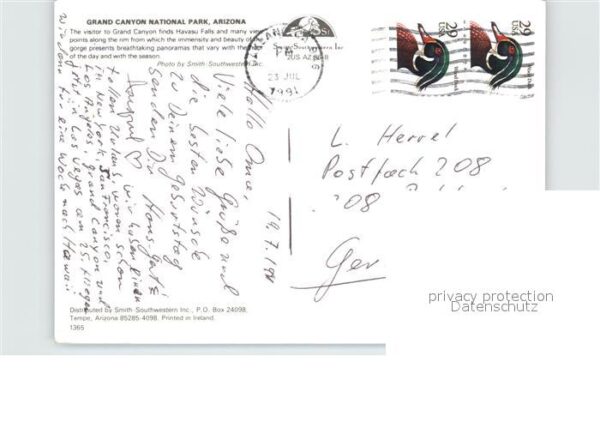 GRAND CANYON NATIONAL PARK, ARIZONA
The visitor to Grand Canyon finds Havasu Falls and many view
points along the rim from which the immensity and beauty of the
gorge presents breathtaking panoramas that vary with the
of the day and with the season.
Photo by Smith-Southwestern Inc.
Smith-Southwestern Inc
23 JUL
1991
29
USA
29
USA
Hallo Oma,
19.7.1991
Viele liebe Grüße und
die besten Wünsche
zu Deinem Geburtstag
Senden Dir Hans-Gert &
wir haben einen
waren schon
in New York, San Francisco,
Los Angeles, Grand Canyon und
Las Vegas am 25.7. fliegen
wir dann für eine Woche nach Hawaii
L. Herrel
Postfach 208
208
Ger
Distributed by Smith-Southwestern Inc., P.O. Box 24098,
Tempe, Arizona 85285-4098. Printed in Ireland.
1365
privacy protection
Datenschutz